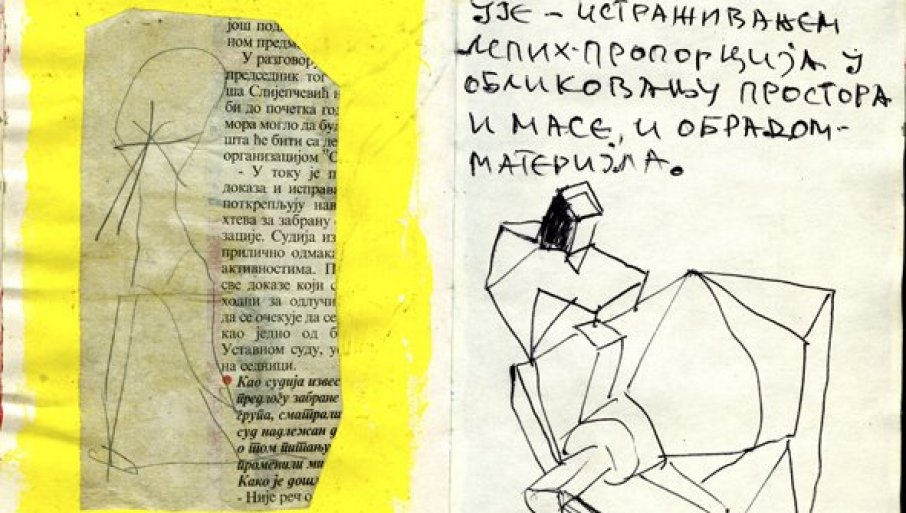 још под
ном предм
У разговору
председник тог
ша Слијепчевић н
би до почетка год
мора могло да буд
шта ће бити са де
организацијом "С
- У току је п
доказа и исправ
поткрепљују нав
хтева за забрану
зације. Судија из
прилично одмака
активностима. П
све доказе који с
ходни за одлучи
да се очекује да се
као једно од б
Уставном суду, у
на седници.
Као судија извес
предлогу забране
група, сматрали
суд надлежан д
о том питању
променили ми
Како је дошл
- Није реч о
УЈЕ - ИСТРАЖИВАЊЕМ
ЛЕПИХ-ПРОПОРЦИЈА У
ОБЛИКОВАЊУ ПРОСТОРА
И МАСЕ, И ОБРАДОМ-
МАТЕРИЈАЛА.